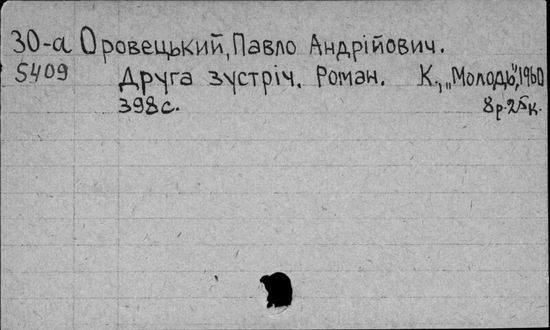 30-а Оровецький, Павло Андрійович.
5409 Друга зустріч. Роман. К., „Молодь", 1960
398с. 8р.25к.